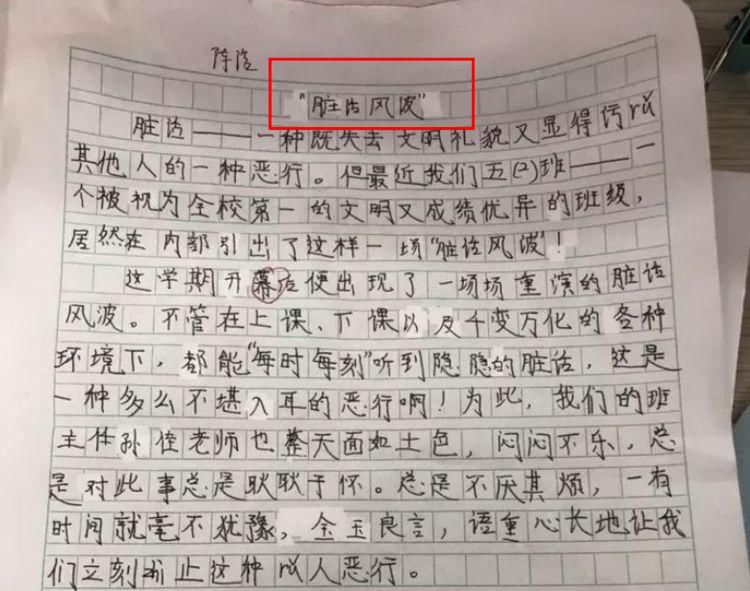 陈浩
"脏话风波"
脏话——一种既失去文明礼貌又显得污以
其他人的一种恶行。但最近我们五(2)班——一
个被视为全校第一的文明又成绩优异的班级,
居然在内部引出了这样一场"脏话风波"!
这学期开幕后便出现了一场场重演的脏话
风波。不管在上课、下课以及千变万化的各种
环境下,都能"每时每刻"听到隐隐的脏话,这是
一种多么不堪入耳的恶行啊!为此,我们的班
主任孙佳老师也整天面如土色,闷闷不乐,总
是对此事总是耿耿于怀。总是不厌其烦,一有
时间就毫不犹豫,金玉良言,语重心长地让我
们立刻停止这种以人恶行。